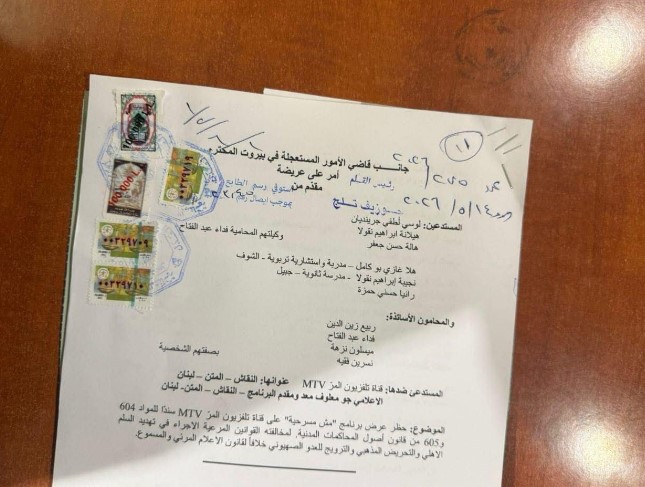 جانب قاضي الأمور المستعجلة في بيروت المحترم
أمر على عريضة
رئيس القلم
مقدم من
جوزيف تلج
المستدعين: لوسي لطفي جرينديان
هيلانة ابراهيم نقولا
وكيلتهم المحامية فداء عبد الفتاح
هالة حسن جعفر
هلا غازي بو كامل – مدربة واستشارية تربوية - الشوف
نجيبة إبراهيم نقولا - مدرسة ثانوية – جبيل
رانيا حسني حمزة
والمحامون الأساتذة:
ربيع زين الدين
فداء عبد الفتاح
ميسلون نزهة
نسرين فقيه
بصفتهم الشخصية
المستدعى ضدها: قناة تلفزيون المر MTV عنوانها: النقاش – المتن – لبنان
الاعلامي جو معلوف معد ومقدم البرنامج – النقاش – المتن- لبنان
الموضوع: حظر عرض برنامج "مش مسرحية" على قناة تلفزيون المر MTV سندًا للمواد 604
و605 من قانون أصول المحاكمات المدنية. لمخالفته القوانين المرعية الاجراء في تهديد السلم
الاهلي والتحريض المذهبي والترويج للعدو الصهيوني خلافاً لقانون الاعلام المرئي والمسموع.
١٠٠,٠٠٠ L.L
٠٠٣٢٩٧١٩
٠٠٣٢٩٧٠٩
٠٠٣٢٩٧١٠